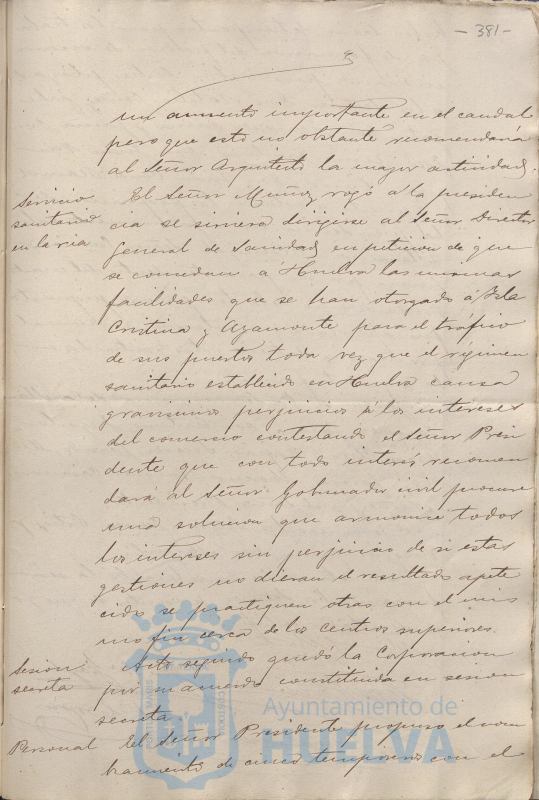 - 381 -
un aumento importante en el caudal
pero que esto no obstante recomendaria
al Señor Arquitecto la mayor actividad.
Servicio
sanitario
en la ria
El Señor Muñoz rogó a la presiden
cia se sirviera dirigirse al Señor Director
General de Sanidad en peticion de que
se concedan á Huelva las mismas
facilidades que se han otorgado á Isla
Cristina y Ayamonte para el tráfico
de sus puertos toda vez que el régimen
sanitario establecido en Huelva causa
gravisimos perjuicios á los intereses
del comercio contestando el Señor Presi
dente que con todo interés recomen
dará al Señor Gobernador civil procure
una solucion que armonice todos
los intereses sin perjuicio de si estas
gestiones no dieran el resultado apete
cido se practiquen otras con el mis
mo fin cerca de los centros superiores.
Sesion
secreta
Acto seguido quedó la Corporacion
por su acuerdo constituida en sesion
secreta.
Personal
El Señor Presidente propuso el nom
bramiento de cinco temporeros con el
Ayuntamiento de
HUELVA